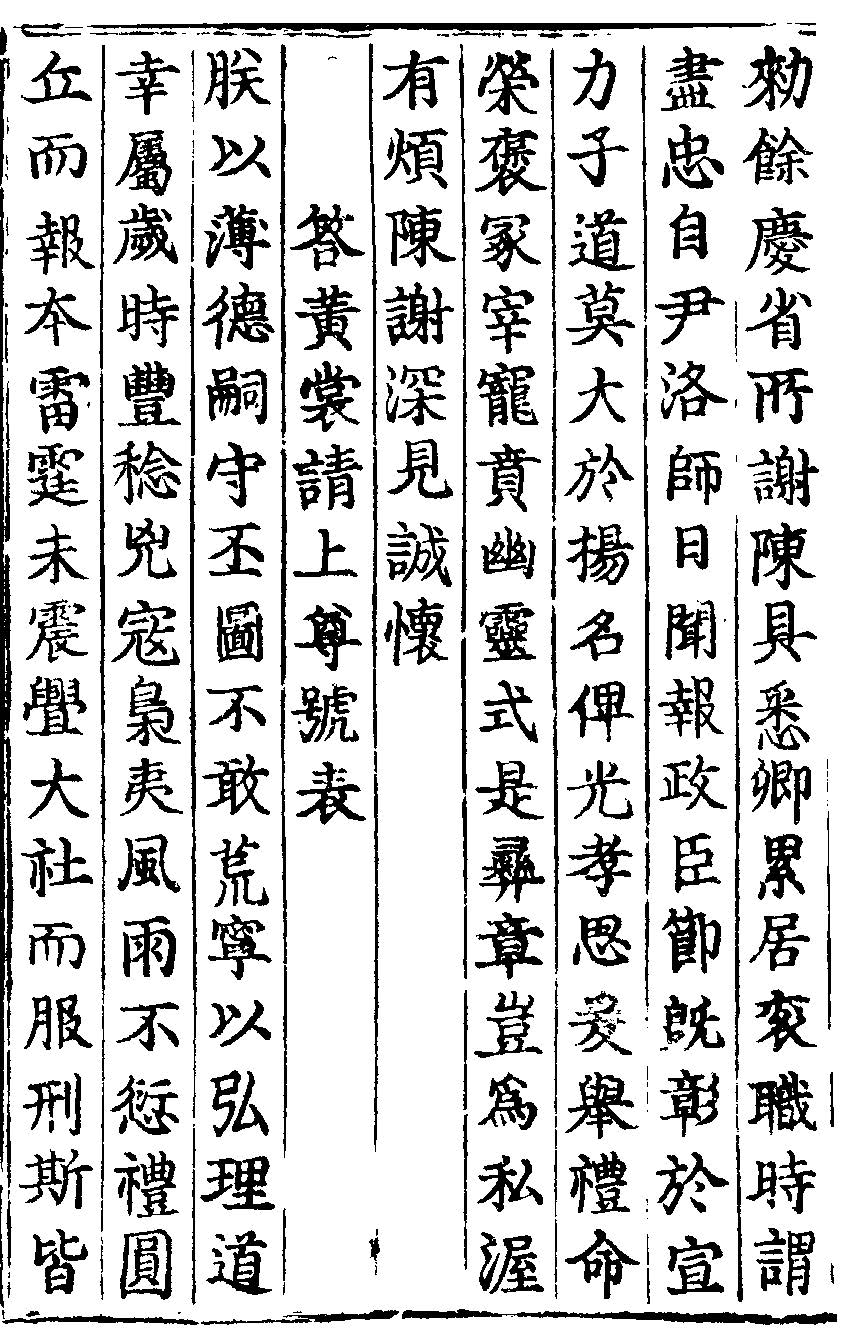 勑餘慶省所謝陳具悉卿累居衮職時謂
盡忠自尹洛師日聞報政臣節旣彰於宣
力子道莫大於揚名俾光孝思爰舉禮命
榮褒冢宰寵賁幽靈式是彝章豈爲私渥
有煩陳謝深見誠懷
答黃裳請上尊號表
朕以薄德嗣守丕圖不敢荒寧以弘理道
幸屬歲時豐稔兇寇梟夷風雨不愆禮圓
丘而報本雷霆未震舋大社而服刑斯皆